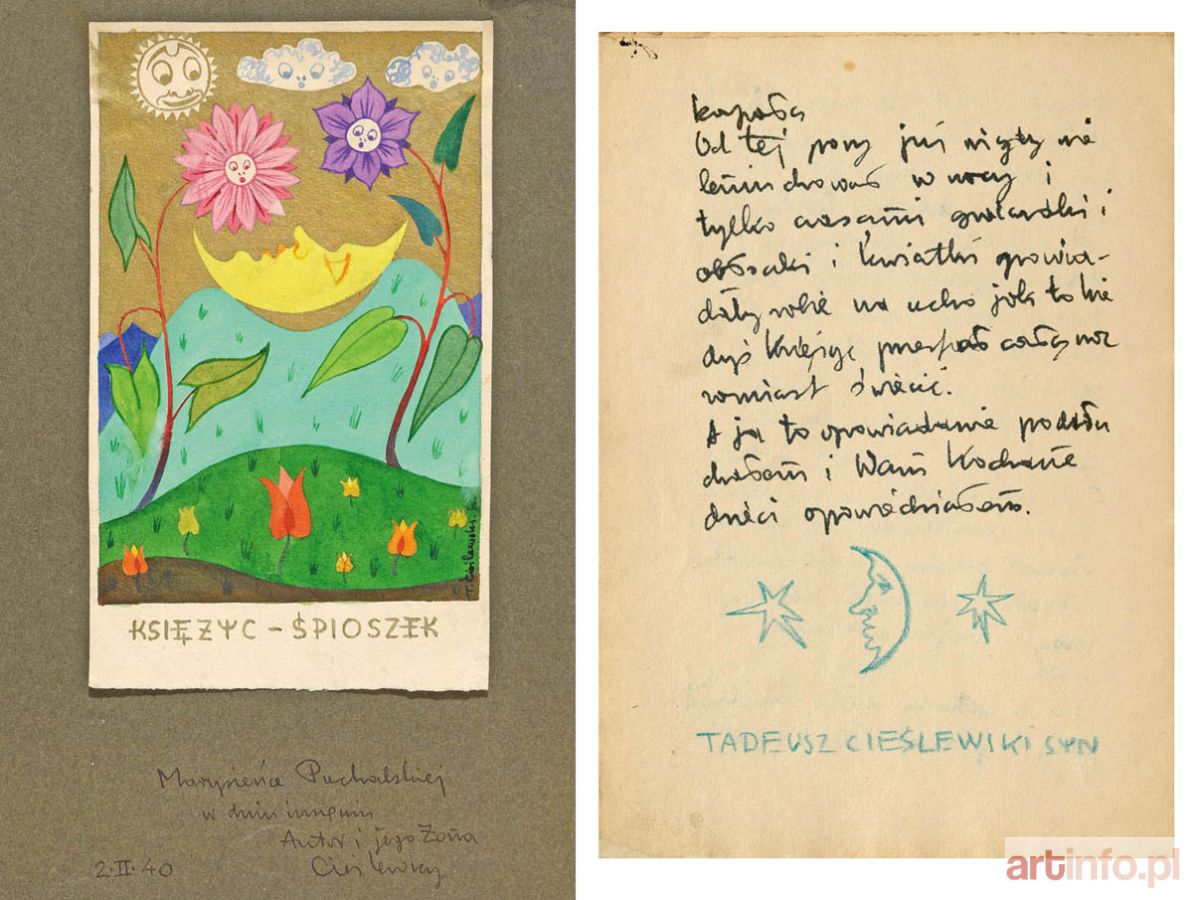 T. Cieślewski
KSIĘŻYC – ŚPIOSZEK
Marysieńce Puchalskiej
w dniu imienin
Autor i jego Żona
Cieślewscy
2·II·40
Od tej pory już nigdy nie
w nocy i
tylko czasami gwiazdki i
obłoczki i kwiatki opowia-
dały sobie na ucho jak to kie
dyś Księżyc przespał całą noc
zamiast świecić.
A ja to opowiadanie podsłu
chałem i Wam Kochane
dzieci opowiedziałem.
TADEUSZ CIEŚLEWSKI SYN
artinfo.pl